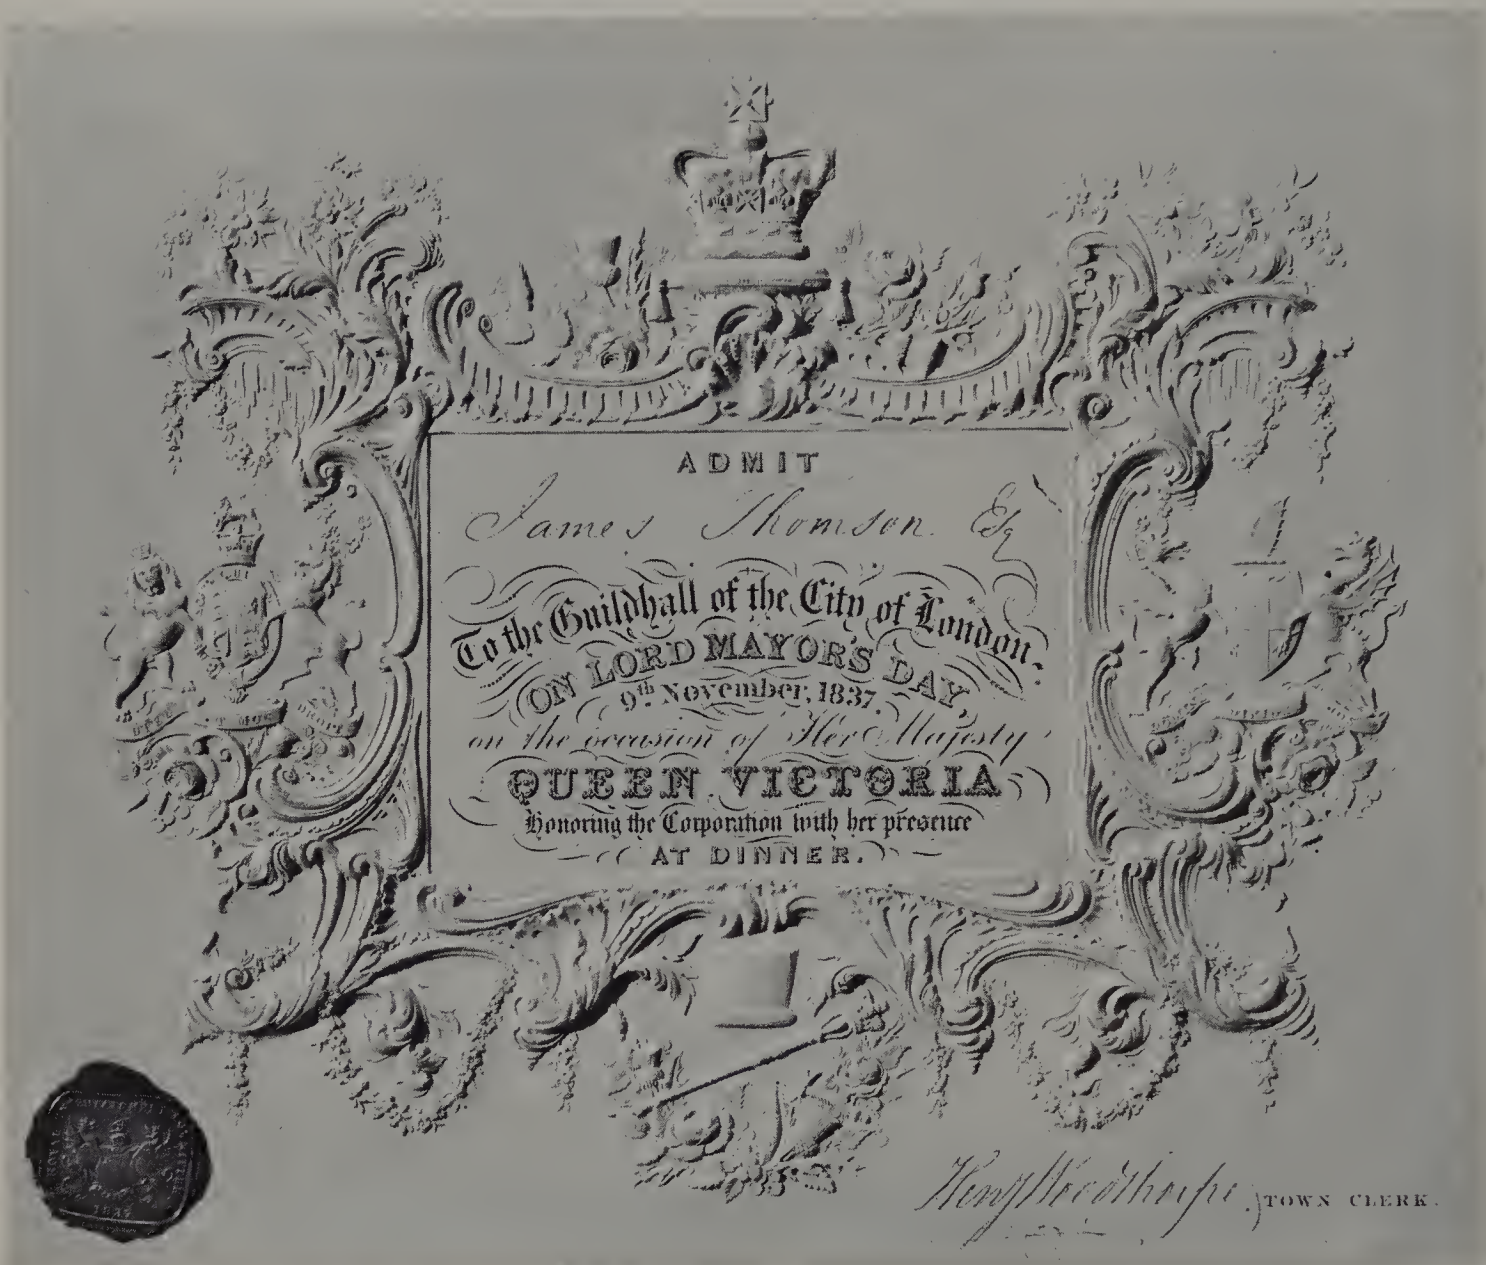 ADMIT
James Thomson Esq
To the Guildhall of the City of London.
ON LORD MAYOR'S DAY,
9th November, 1837.
on the occasion of Her Majesty
QUEEN VICTORIA
Honoring the Corporation with her presence
AT DINNER.
DIEU ET MON DROIT
Henry Woodthorpe TOWN CLERK.
1837